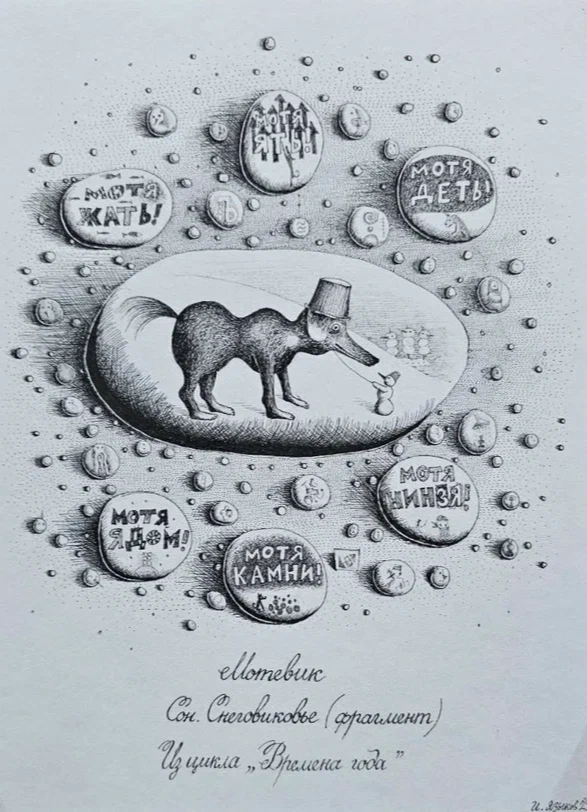 МОТЯ
ЯТЬ!
МОТЯ
ДЕТЬ!
МОТЯ
ЖАТЬ!
Ъ
МОТЯ
НИНЗЯ!
МОТЯ
ЯДОМ!
МОТЯ
КАМНИ!
Мотевик
Сон. Снеговиковье (фрагмент)
Из цикла „Времена года"